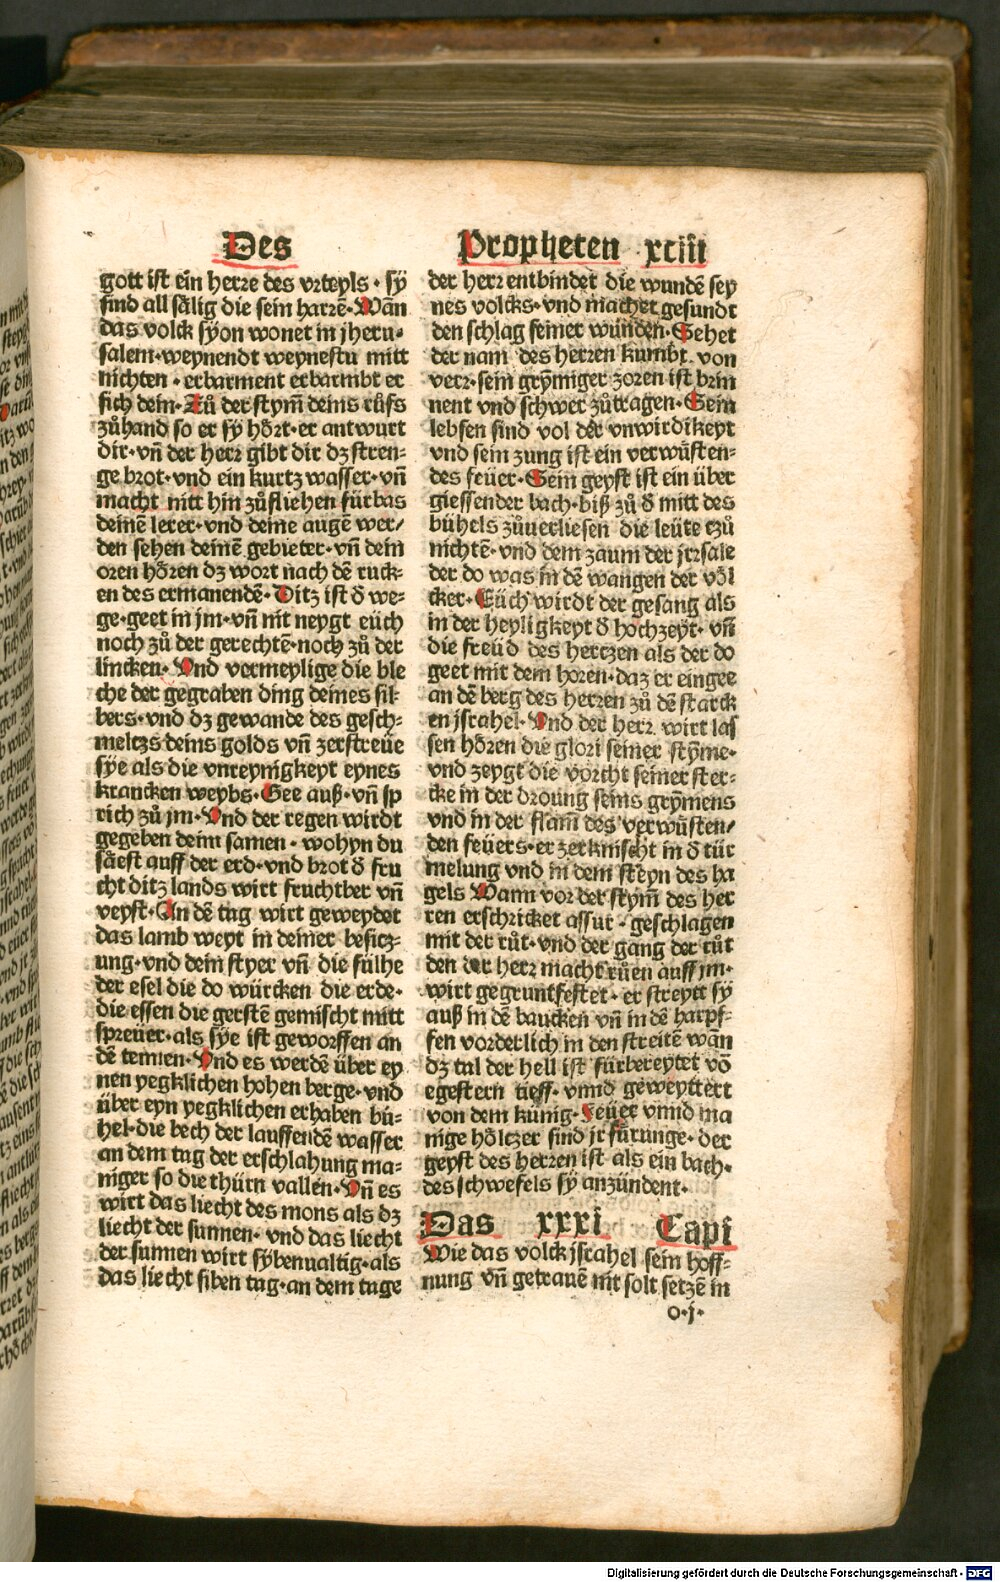 Des
gott ist ein herre des vrteyls · sÿ
sind all sälig die sein harrē· Wañ
das volck sÿon wonet in jheru-
salem· weynendt weynestu mitt
nichten · erbarment erbarmbt er
sich dein· Zů der stym̄ deins růfs
zůhand so er sÿ hört· er antwurt
dir· vñ der herr gibt dir dz stren-
ge brot· vnd ein kurtz wasser· vñ
macht nitt hin zůfliehen fürbas
deinē lerer· vnd deine augē wer/
den sehen deinē gebieter· vñ dein
oren hören dz wort nach dē ruck-
en des ermanendē· Ditz ist d̄ we-
ge· geet in jm· vñ nit neygt eüch
noch zů der gerechtē· noch zů der
lincken· Vnd vermeylige die ble
che der gegraben ding deines sil-
bers· vnd dz gewande des gesch-
meltzs deins golds vñ zerstreüe
sÿe als die vnreynigkeyt eynes
krancken weybs· Gee auß· vñ sp
rich zů jm· Vnd der regen wirdt
gegeben deim samen · wohyn du
säest auff der erd· vnd brot d̄ fru
cht ditz lands wirt fruchtber vñ
veyst· An dē tag wirt geweydet
das lamb weyt in deiner besitz-
ung· vnd dein styer vñ die fülhe
der esel die do würcken die erde·
die essen die gerstē gemischt mitt
spreuer· als sÿe ist geworffen an
dē tennen· Vnd es werdē über ey
nen yegklichen hohen berge· vnd
über eyn yegklichen erhaben bü-
hel· die bech der lauffendē wasser
an dem tag der erschlahung ma-
niger so die thürn vallen· Vñ es
wirt das liecht des mons als dz
liecht der sunnen· vnd das liecht
der sunnen wirt sÿbenualtig· als
das liecht siben tag· an dem tage
Propheten xciiii
der herr entbindet die wundē sey
nes volcks· vnd machet gesundt
den schlag seiner wunden· Sehet
der nam des herren kumbt von
verr· sein grÿmiger zoren ist brin
nent vnd schwer zůtragen· Sein
lebsen sind vol der vnwirdikeyt
vnd sein zung ist ein verwüsten-
des feüer· Sein geyst ist ein über
giessender bach· biß zů d̄ mitt des
bühels zůuerliesen die leüte czů
nichtē· vnd dem zaum der jrrsale
der do was in dē wangen der völ
cker· Eüch wirdt der gesang als
in der heyligkeyt d̄ hochzeyt· vñ
die freüd des hertzen als der do
geet mit dem horen· daz er eingee
an dē berg des herren zů dē starck
en jsrahel· Vnd der herr wirt las
sen hören die glori seiner stÿme·
vnd zeygt die vorcht seiner ster-
cke in der droung seins grÿmens
vnd in der flam̄ des verwüsten/
den feüers· er zerknischt in d̄ tür
melung vnd in dem steyn des ha
gels Wann vor der stym̄ des her
ren erschricket assur · geschlagen
mit der růt· vnd der gang der růt
den der herr macht růen auff jm·
wirt gegruntfestet· er streytt sÿ
auß in dē baucken vñ in dē harpf-
fen vorderlich in den streitē wan
dz tal der hell ist fürbereytet vō
egestern tieff· vnnd geweyttert
von dem künig· Feüer vnnd ma
nige höltzer sind jr fürunge· der
geyst des herren ist als ein bach·
des schwefels sÿ anzündent·
Das xxxi Capi
Wie das volck jsrahel sein hoff-
nung vñ getrauē nit solt setzē in
o·j·
Digitalisierung gefördert durch die Deutsche Forschungsgemeinschaft - DFG